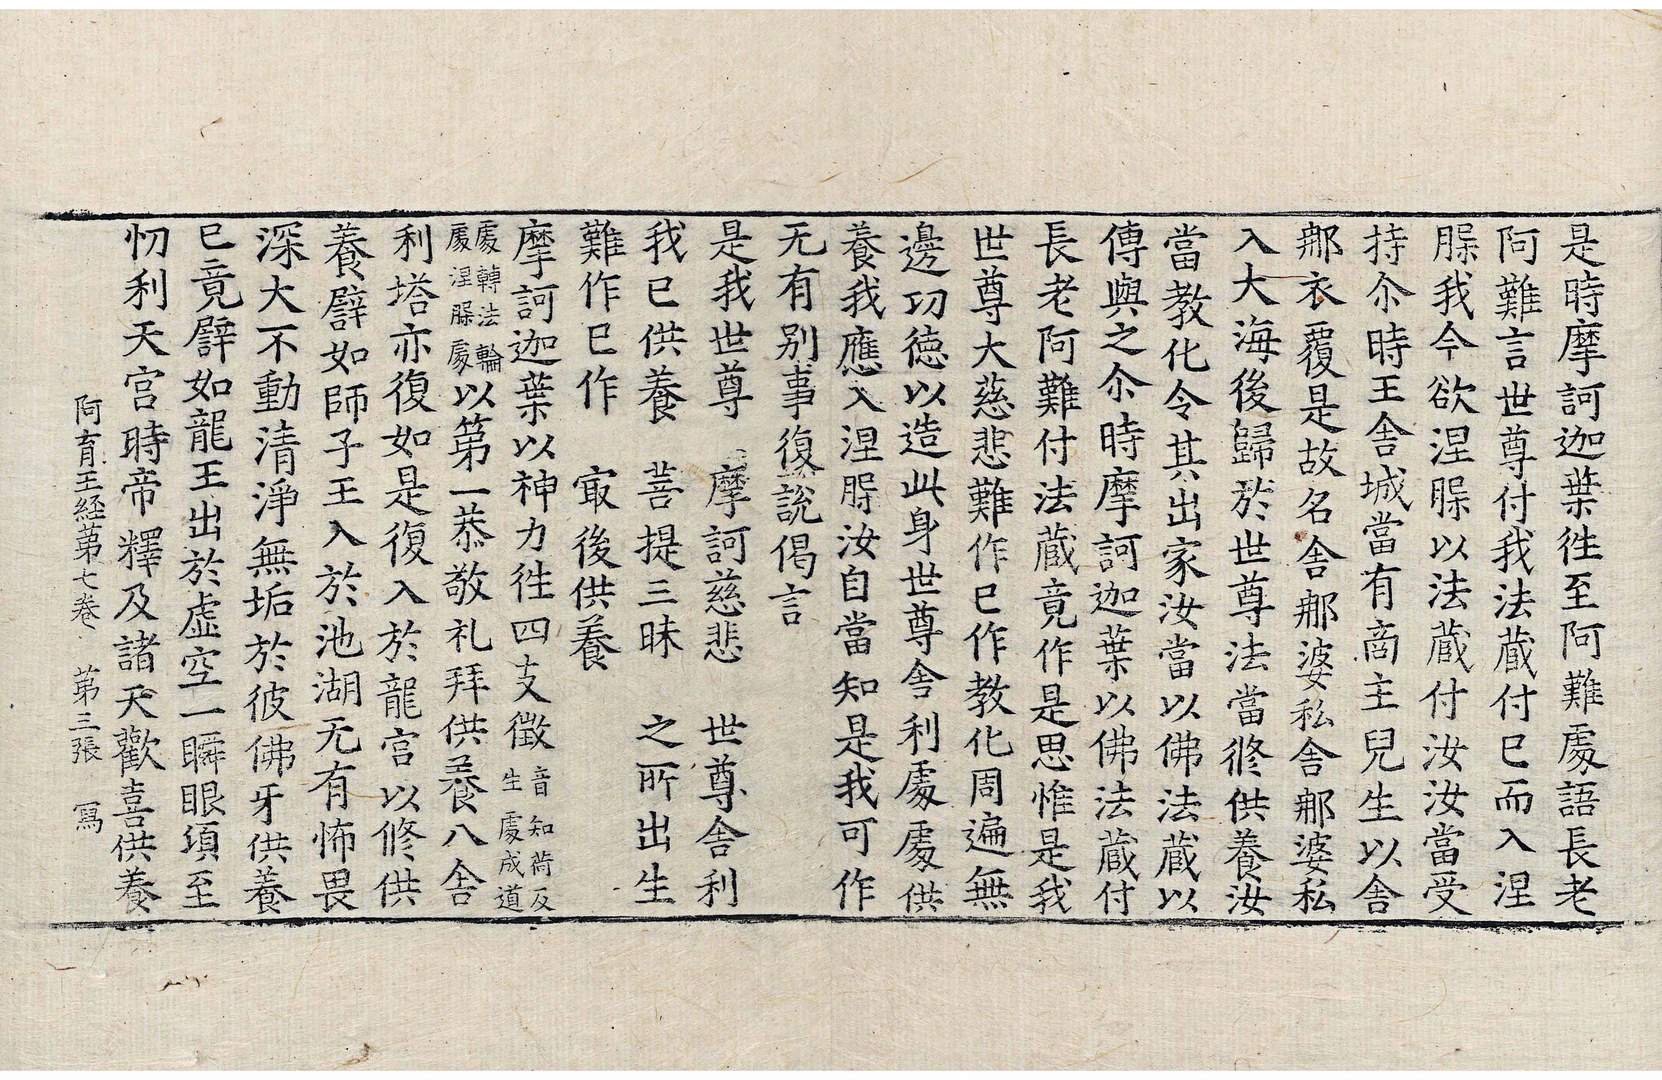 是時摩訶迦葉徃至阿難處語長老
阿難言世尊付我法蔵付巳而入涅
脲我今欲涅脲以法蔵付汝汝當受
持尒時王舎城當有商主兒生以舎
那衣覆是故名舎那婆私舎那婆私
入大海後歸於世尊法當修供養汝
當教化令其出家汝當以佛法蔵以
傳與之尒時摩訶迦葉以佛法蔵付
長老阿難付法蔵竟作是思惟是我
世尊大慈悲難作巳作教化周遍無
邊㓛徳以造此身世尊舎利處處供
養我應入涅脲汝自當知是我可作
无有别事復說偈言
是我世尊　摩訶慈悲　世尊舎利
我巳供養　菩提三昧　之所出生
難作巳作　㝡後供養
摩訶迦葉以神力徃四支徴音知荷反生處成道
處轉法輪處涅脲處以第一恭敬礼拜供養八舎
利塔亦復如是復入於龍宫以修供
養譬如師子王入於池湖无有怖畏
深大不動清淨無垢於彼佛牙供養
巳竟譬如龍王出於虚空一瞬眼湏至
忉利天宫時帝釋及諸天歡喜供養
阿育王経苐七卷　苐三張　冩